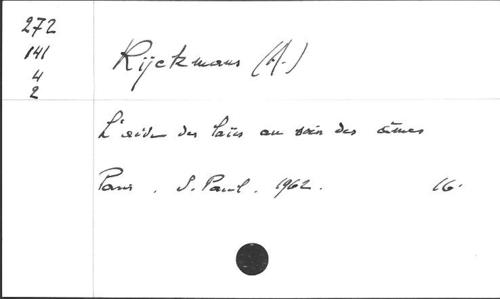 272
141
4
2
Rijckmans (A.)
L'aide des laïcs au soin des âmes
Paris. S. Paul. 1962. 16.